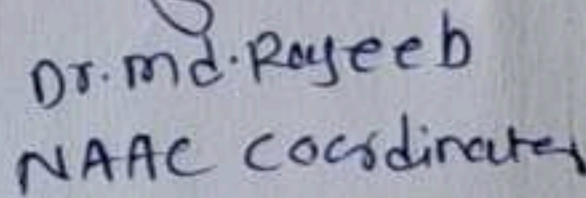 Dr. Md. Rayeeb
NAAC Coordinator